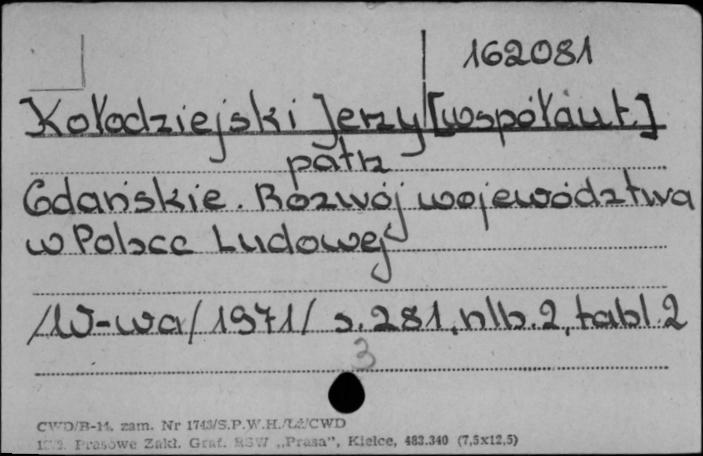 162081
Kołodziejski Jerzy [współaut.]
patrz
Gdańskie. Rozwój województwa
w Polsce Ludowej
/W-wa/ 1971/ s. 281, nlb. 2, tabl. 2
3
CWD/B-14. zam. Nr 1743/S.P.W.H./Lz/CWD
Prasowe Zakł. Graf. RSW „Prasa", Kielce, 483.340 (7,5x12,5)